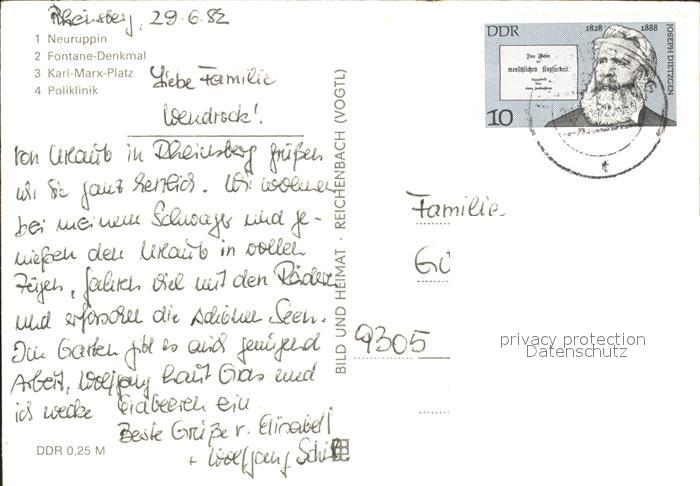 Rheinsberg, 29.6.82
1 Neuruppin
2 Fontane-Denkmal
3 Karl-Marx-Platz
4 Poliklinik
Liebe Familie
Wendrock!
Von Urlaub in Rheinsberg grüßen
wir Sie ganz herzlich. Wir wohnen
bei meinem Schwager und ge-
nießen den Urlaub in vollen
Zügen, fahren viel mit den Rädern
und erforschen die schönen Seen.
Im Garten gibt es auch genügend
Arbeit, Wolfgang haut Gras und
ich wecke Erdbeeren ein.
Beste Grüße v. Elisabeth
+ Wolfgang
DDR 0,25 M
BILD UND HEIMAT · REICHENBACH (VOGTL)
DDR
1828 1888
JOSEPH DIETZGEN
Das Wesen
der
menschlichen Kopfarbeit.
10
Familie
Gü
9305
privacy protection
Datenschutz